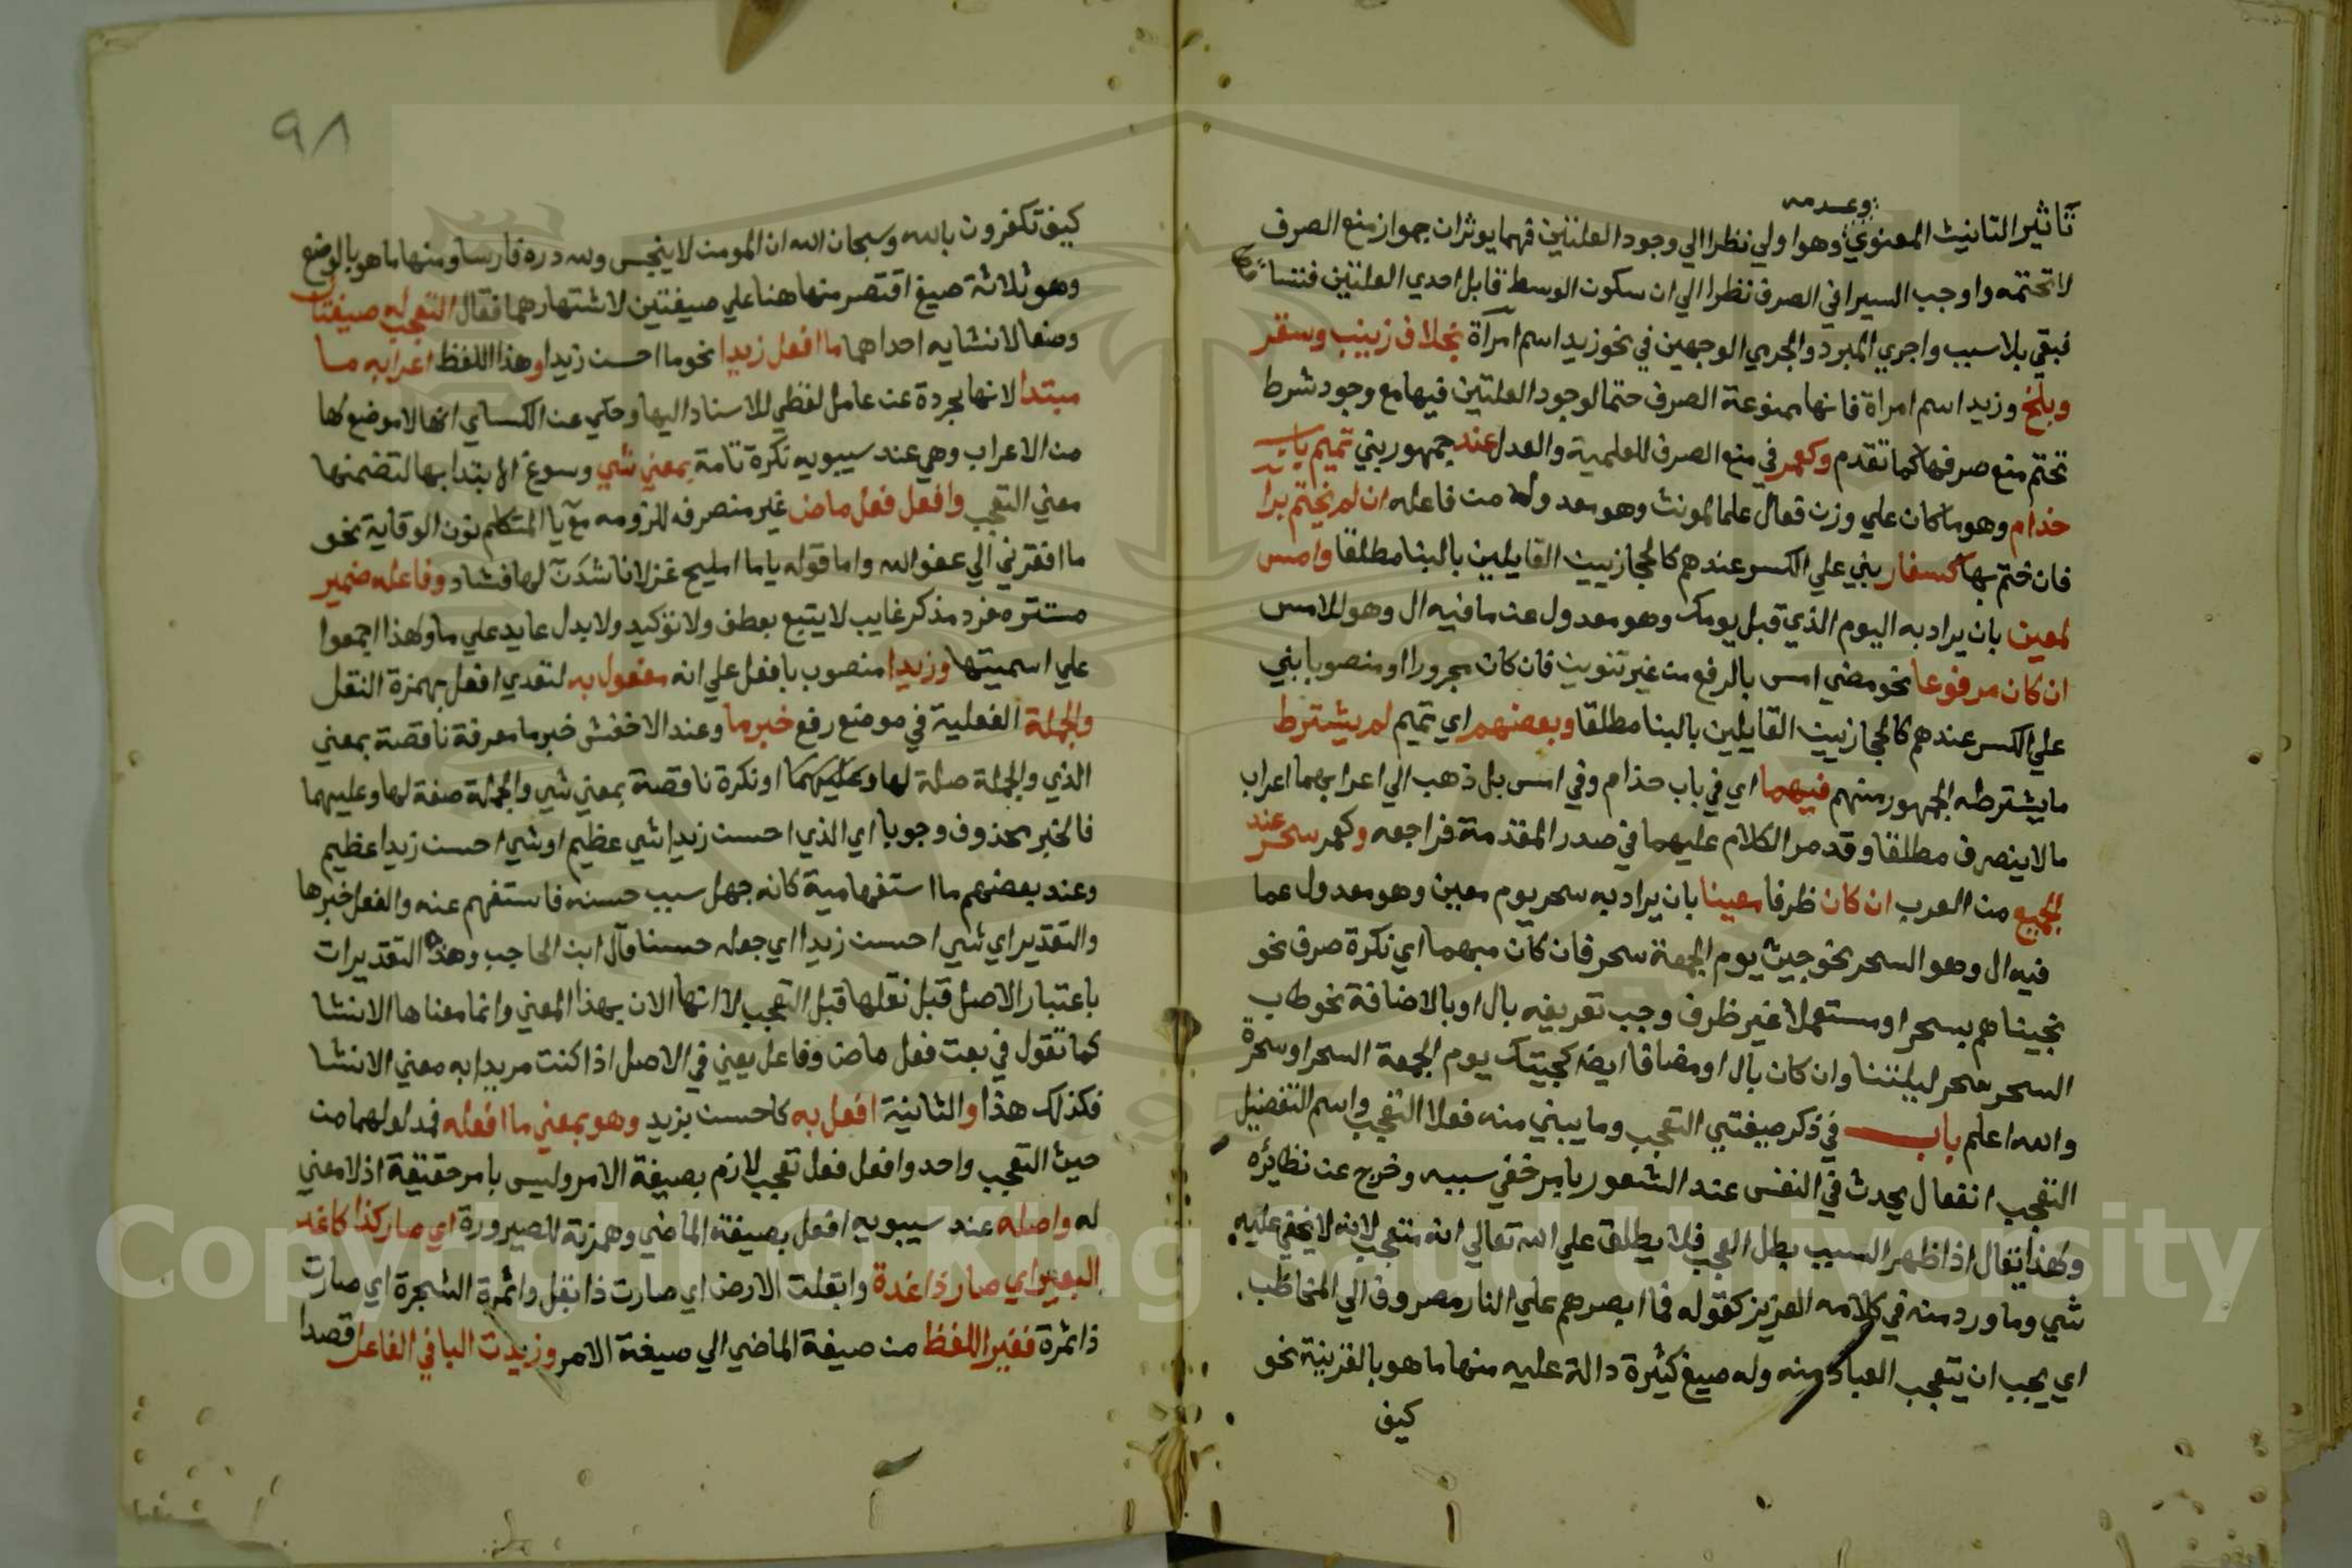 وعدمه
تاثير التانيث المعنوي وهو اولي نظرا الي وجود العلتين فهما يوثران جواز منع الصرف
لا تحتمه واوجب السيرافي الصرف نظرا الي ان سكون الوسط قابل احدي العلتين فتساقطا
فبقي بلا سبب واجري المبرد والجرمي الوجهين في نحو زيد اسم امرأة بخلاف زينب وسقر
وبلخ وزيد اسم امراة فانها ممنوعة الصرف حتما لوجود العلتين فيها مع وجود شرط
تحتم منع صرفها كما تقدم وكعمر في منع الصرف للعلمية والعدل عند جمهور بني تميم باب
حذام وهو ما كان علي وزن فعال علما لمونث وهو معدول من فاعله ان لم يختم برا
فان ختم بها كسفار بني علي الكسر عندهم كالحجازيين القايلين بالبنا مطلقا وامس
لمعين بان يراد به اليوم الذي قبل يومك وهو معدول عن ما فيه ال وهو الامس
ان كان مرفوعا نحو مضي امس بالرفع من غير تنوين فان كان مجرورا او منصوبا بني
علي الكسر عندهم كالحجازيين القايلين بالبنا مطلقا وبعضهم اي تميم لم يشترط
ما يشترطه الجمهور منهم فيهما اي في باب حذام وفي امس بل ذهب الي اعرابهما اعراب
ما لا ينصرف مطلقا وقد مر الكلام عليهما في صدر المقدمة فراجعه وكعمر سحر عند
الجميع من العرب ان كان ظرفا معينا بان يراد به سحر يوم معين وهو معدول عما
فيه ال وهو السحر نحو جيت يوم الجمعة سحر فان كان مبهما اي نكرة صرف نحو
نجيناهم بسحر او مستعملا غير ظرف وجب تعريفه بال او بالاضافة نحو طاب
السحر سحر ليلتنا وان كان بال او مضافا ايضا كجيتك يوم الجمعة السحر او سحره
والله اعلم باب في ذكر صيغتي التعجب وما يبني منه فعلا التعجب واسم التفضيل
التعجب انفعال يحدث في النفس عند الشعور بامر خفي سببه وخرج عن نظائره
ولهذا يقال اذا ظهر السبب بطل العجب فلا يطلق علي الله تعالي انه متعجب لانه لا يخفي عليه
شي وما ورد منه في كلامه العزيز كقوله فما ابصرهم علي النار مصروف الي المخاطب
اي يجب ان يتعجب العباد منه وله صيغ كثيرة دالة عليه منها ما هو بالقرينة نحو
كيف
٩٨
كيف تكفرون بالله وسبحان الله ان المومن لا ينجس ولله دره فارسا ومنها ما هو بالوضع
وهو ثلاثة صيغ اقتصر منها هنا علي صيغتين لاشتهارهما فقال التعجب له صيغتان
وضعا لانشايه احداهما ما افعل زيدا نحو ما احسن زيدا وهذا اللفظ اعرابه ما
مبتدا لانها مجردة عن عامل لفظي للاسناد اليها وحكي عن الكساي انها لا موضع لها
من الاعراب وهي عند سيبويه نكرة تامة بمعني شي وسوغ الابتدا بها لتضمنها
معني التعجب وافعل فعل ماض غير منصرف للزومه مع يا المتكلم نون الوقاية نحو
ما افقرني الي عفو الله واما قوله ياما اميلح غزلانا شدن لها فشاذ وفاعله ضمير
مستتر مفرد مذكر غايب لا يتبع بعطف ولا توكيد ولا بدل عايد علي ما ولهذا اجمعوا
علي اسميتها وزيدا منصوب بافعل علي انه مفعول به لتعدي افعل بهمزة النقل
والجملة الفعلية في موضع رفع خبر ما وعند الاخفش خبر ما معرفة ناقصة بمعني
الذي والجملة صلة لها وعليهما او نكرة ناقصة بمعني شي والجملة صفة لها وعليهما
فالخبر محذوف وجوبا اي الذي احسن زيدا شي عظيم او شي احسن زيدا عظيم
وعند بعضهم ما استفهامية كانه جهل سبب حسنه فاستفهم عنه والفعل خبرها
والتقدير اي شي احسن زيدا اي جعله حسنا قال ابن الحاجب وهذه التقديرات
باعتبار الاصل قبل نقلها قبل التعجب لا انها الان بهذا المعني وانما معناها الانشا
كما تقول في بعت فعل ماض وفاعل يعني في الاصل اذا كنت مريدا به معني الانشا
فكذلك هذا والثانية افعل به كاحسن بزيد وهو بمعني ما افعله فمدلولهما من
حيث التعجب واحد وافعل فعل تعجب لازم بصيغة الامر وليس بامر حقيقة اذ لا معني
له واصله عند سيبويه افعل بصيغة الماضي وهمزته للصيرورة اي صار كذا كاغد
البعير اي صار ذا غدة وابقلت الارض اي صارت ذا بقل واثمرة الشجرة اي صارت
ذا ثمرة فغير اللفظ من صيغة الماضي الي صيغة الامر وزيدت البا في الفاعل قصدا
Copyright © King Saud University